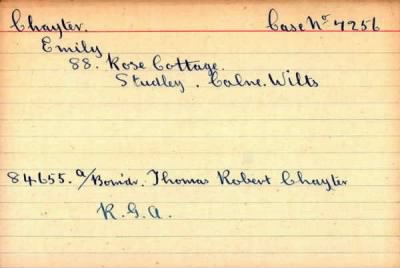 Chayter. Case Nº 7256
Emily
88. Rose Cottage.
Studley. Calne. Wilts
84655. a/Bomdr. Thomas Robert Chayter
R.G.A.